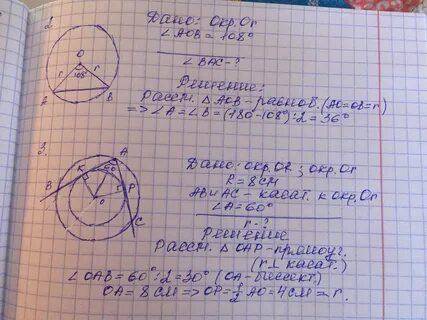 2.
Дано: окр.Or
∠AOB = 108°
∠BAC - ?
Решение:
Рассм. △AOB - равноб. (AO=OB=r)
=> ∠A = ∠B = (180-108°):2 = 36°
O
r
r
108°
B
3.
Дано: окр.OR; окр.Or
R = 8см
AB и AC - касат. к окр.Or
∠A = 60°
r - ?
Решение
Рассм. △OAP - прямоуг.
(r⊥касат.)
∠OAB = 60°:2 = 30° (OA - биссект)
OA = 8см => OP = ½ AO = 4см = r.
A
K
60°
B
P
O
C